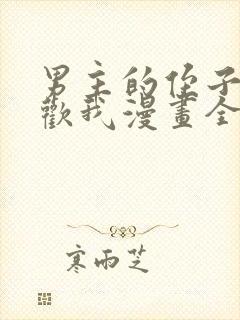 男主的侄子
歡我漫畫全
寒雨芝